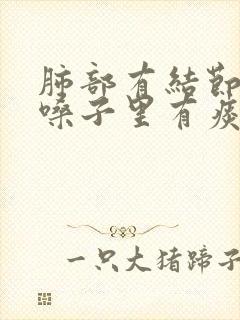 肺部有結節
嗓子里有痰
一只大猪蹄子